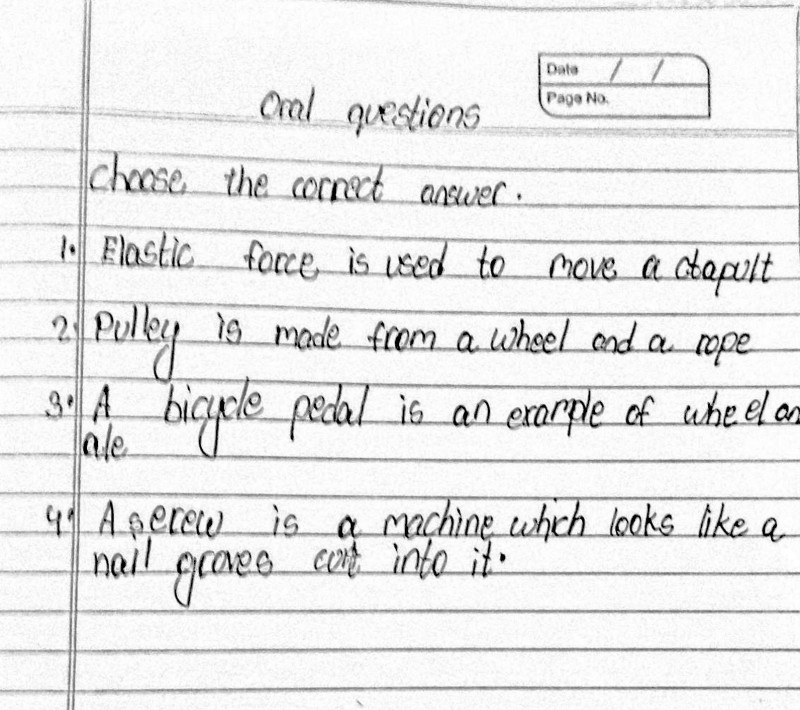 Date / /
Page No.
Oral questions
Choose the correct answer.
1. Elastic force is used to move a ctapult
2. Pulley is made from a wheel and a rope
3. A bicycle pedal is an example of wheel an
ale
4. A screw is a machine which looks like a
nail groves cut into it.